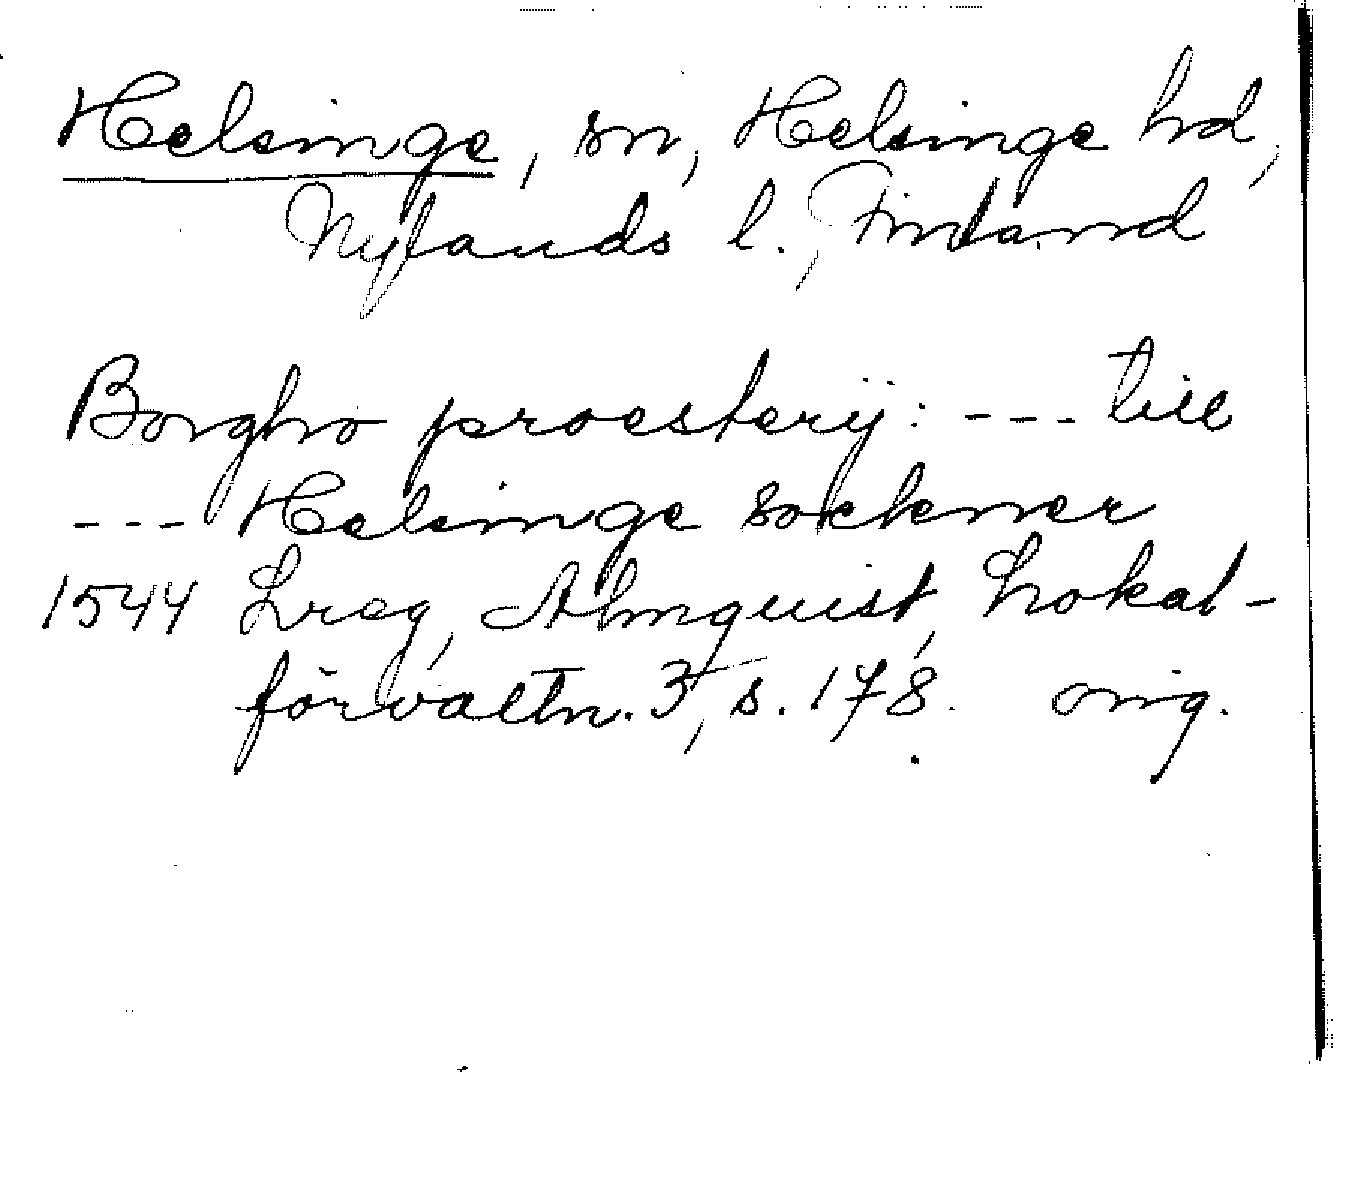 Helsinge, sn, Helsinge hd,
Nylands l., Finland
Borgho proestery: --- till
--- Helsinge sockner
1544 Lreg, Almquist, Lokal-
förvaltn. 3, s. 178. orig.